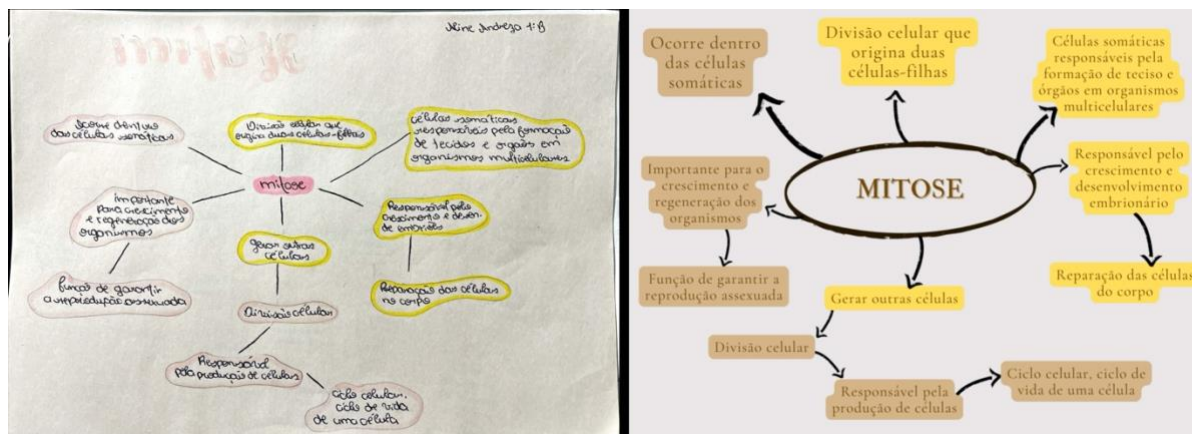 Aline Andreza 1:B
Ocorre dentro
das células somáticas
Divisão celular que
origina duas células-filhas
células somáticas
responsáveis pela formação
de tecidos e orgãos em
organismos multicelulares
mitose
Importante
para crescimento
e regeneração dos
organismos
Responsável pelo
crescimento e desen.
de embriões
gerar outras
células
função de garantir
a reprodução assexuada
Reparação das células
no corpo
Divisão células
Responsável
pela produção de células
ciclo celular,
ciclo de vida
de uma célula
Ocorre dentro
das células
somáticas
Divisão celular que
origina duas
células-filhas
Células somáticas
responsáveis pela
formação de teciso e
órgãos em organismos
multicelulares
Importante para o
crescimento e
regeneração dos
organismos
MITOSE
Responsável pelo
crescimento e
desenvolvimento
embrionário
Função de garantir a
reprodução assexuada
Gerar outras células
Reparação das células
do corpo
Divisão celular
Responsável pela
produção de células
Ciclo celular, ciclo de
vida de uma célula